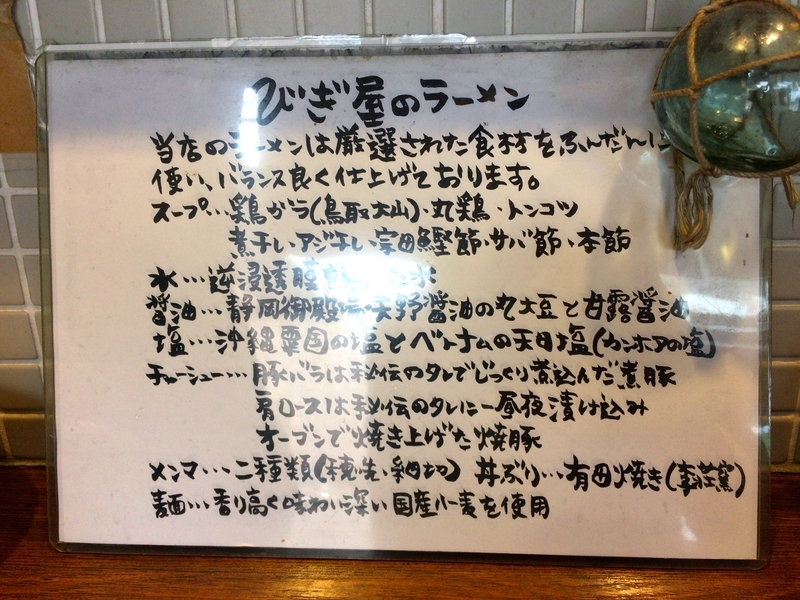 びぎ屋のラーメン
当店のラーメンは厳選された食材をふんだんに
使い、バランス良く仕上げております。
スープ…鶏がら(鳥取大山)・丸鶏・トンコツ
煮干し・アジ干し・宗田鰹節・サバ節・本節
水…逆浸透膜 水
醤油…静岡御殿場天野醤油の丸大豆と甘露醤油
塩…沖縄粟国の塩とベトナムの天日塩(カンホアの塩)
チャーシュー…豚バラは秘伝のタレでじっくり煮込んだ煮豚
肩ロースは秘伝のタレに一昼夜漬け込み
オーブンで焼き上げた焼豚
メンマ…二種類(穂先・細切) 丼ぶり…有田焼き(李荘窯)
麺…香り高く味わい深い国産小麦を使用